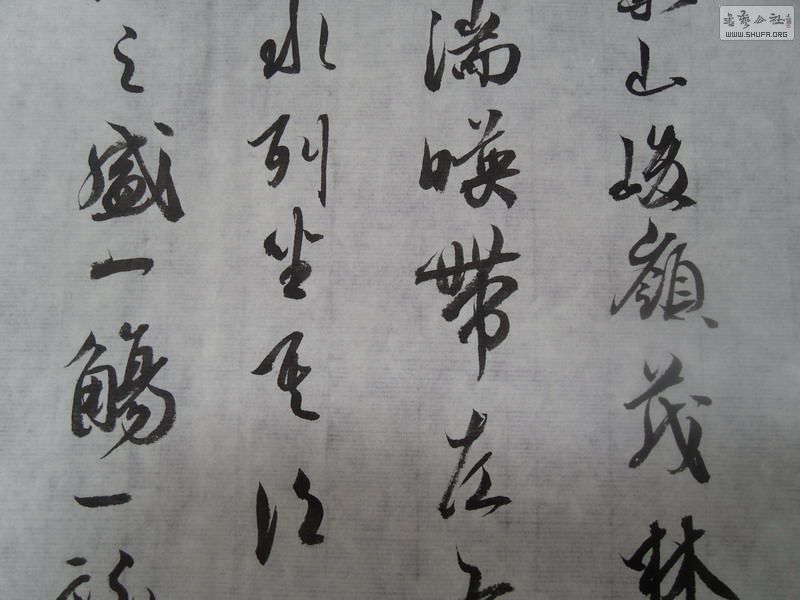 山峻嶺茂林
湍暎帶左
水列坐其次
之盛一觴一詠
書藝公社
WWW.SHUFA.ORG